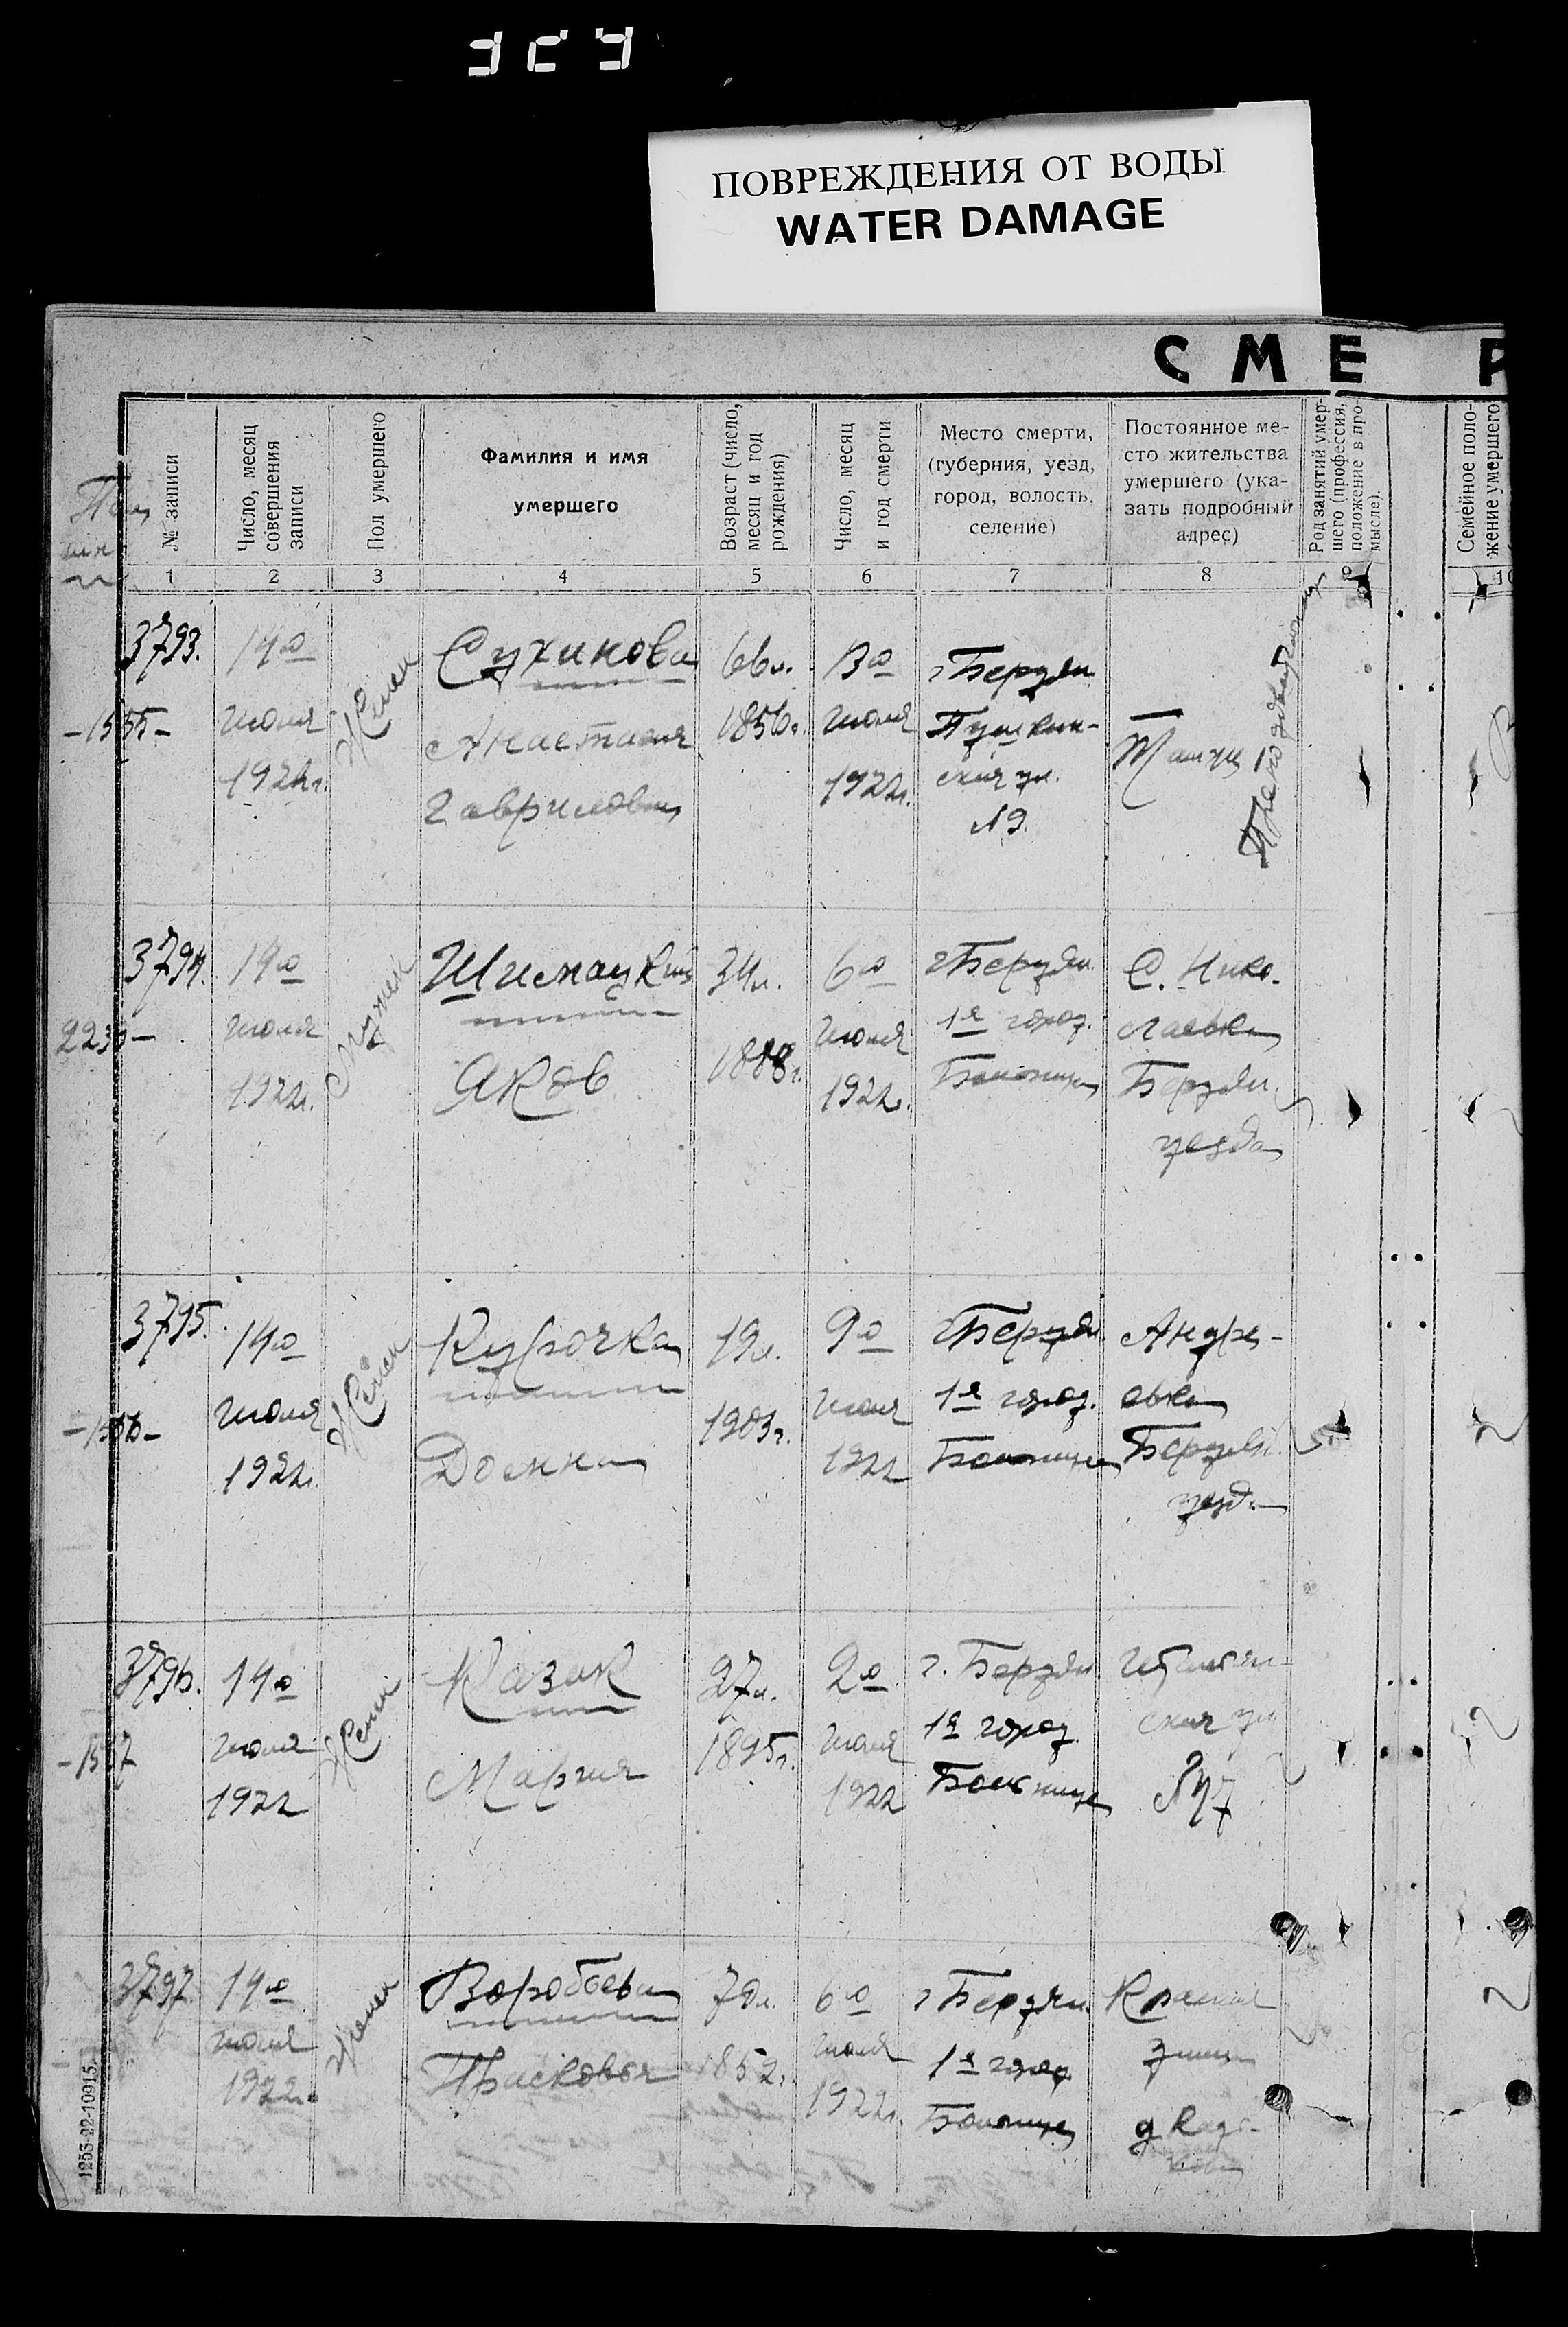 ПОВРЕЖДЕНИЯ ОТ ВОДЫ
WATER DAMAGE
СМЕ Р
№ записи
Число, месяц
совершения
записи
Пол умершего
Фамилия и имя
умершего
Возраст (число,
месяц и год
рождения)
Число, месяц
и год смерти
Место смерти,
(губерния, уезд,
город, волость,
селение)
Постоянное ме-
сто жительства
умершего (ука-
зать подробный
адрес)
Род занятий умер-
шего (профессия,
положение в про-
мысле).
Семейное поло-
жение умершего
1 2 3 4 5 6 7 8 9 10
3793.
-1555-
14го
июля
1922г.
Женск
Сухинова
Анастасия
Гавриловна
66л.
1856г.
13го
июля
1922г.
г Бердян
Пушкин-
ская ул.
№9.
3794.
14го
июля
1922г.
Мужск
Яков
34л.
1888г.
6го
июля
1922г.
г Бердян.
1я город.
Больница
С. Нико-
лаевка
Бердян.
уезда
3795.
-1556-
14го
июля
1922г.
Женск
Курочка
Домна
19л.
1903г.
9го
июля
1922
г Бердян
1я город.
Больница
Андре-
евка
Бердян.
уезда
3796.
-1557
14го
июля
1922
Женск
Казак
Мария
27л.
1895г.
2го
июля
1922
г. Бердян
1я город
Больница
ская ул
№47
3797
14го
июля
1922г.
Женск
Воробьева
Прасковья
70л.
1852г.
6го
июля
1922г.
г Бердян.
1я город
Больница
1253-22-10915.